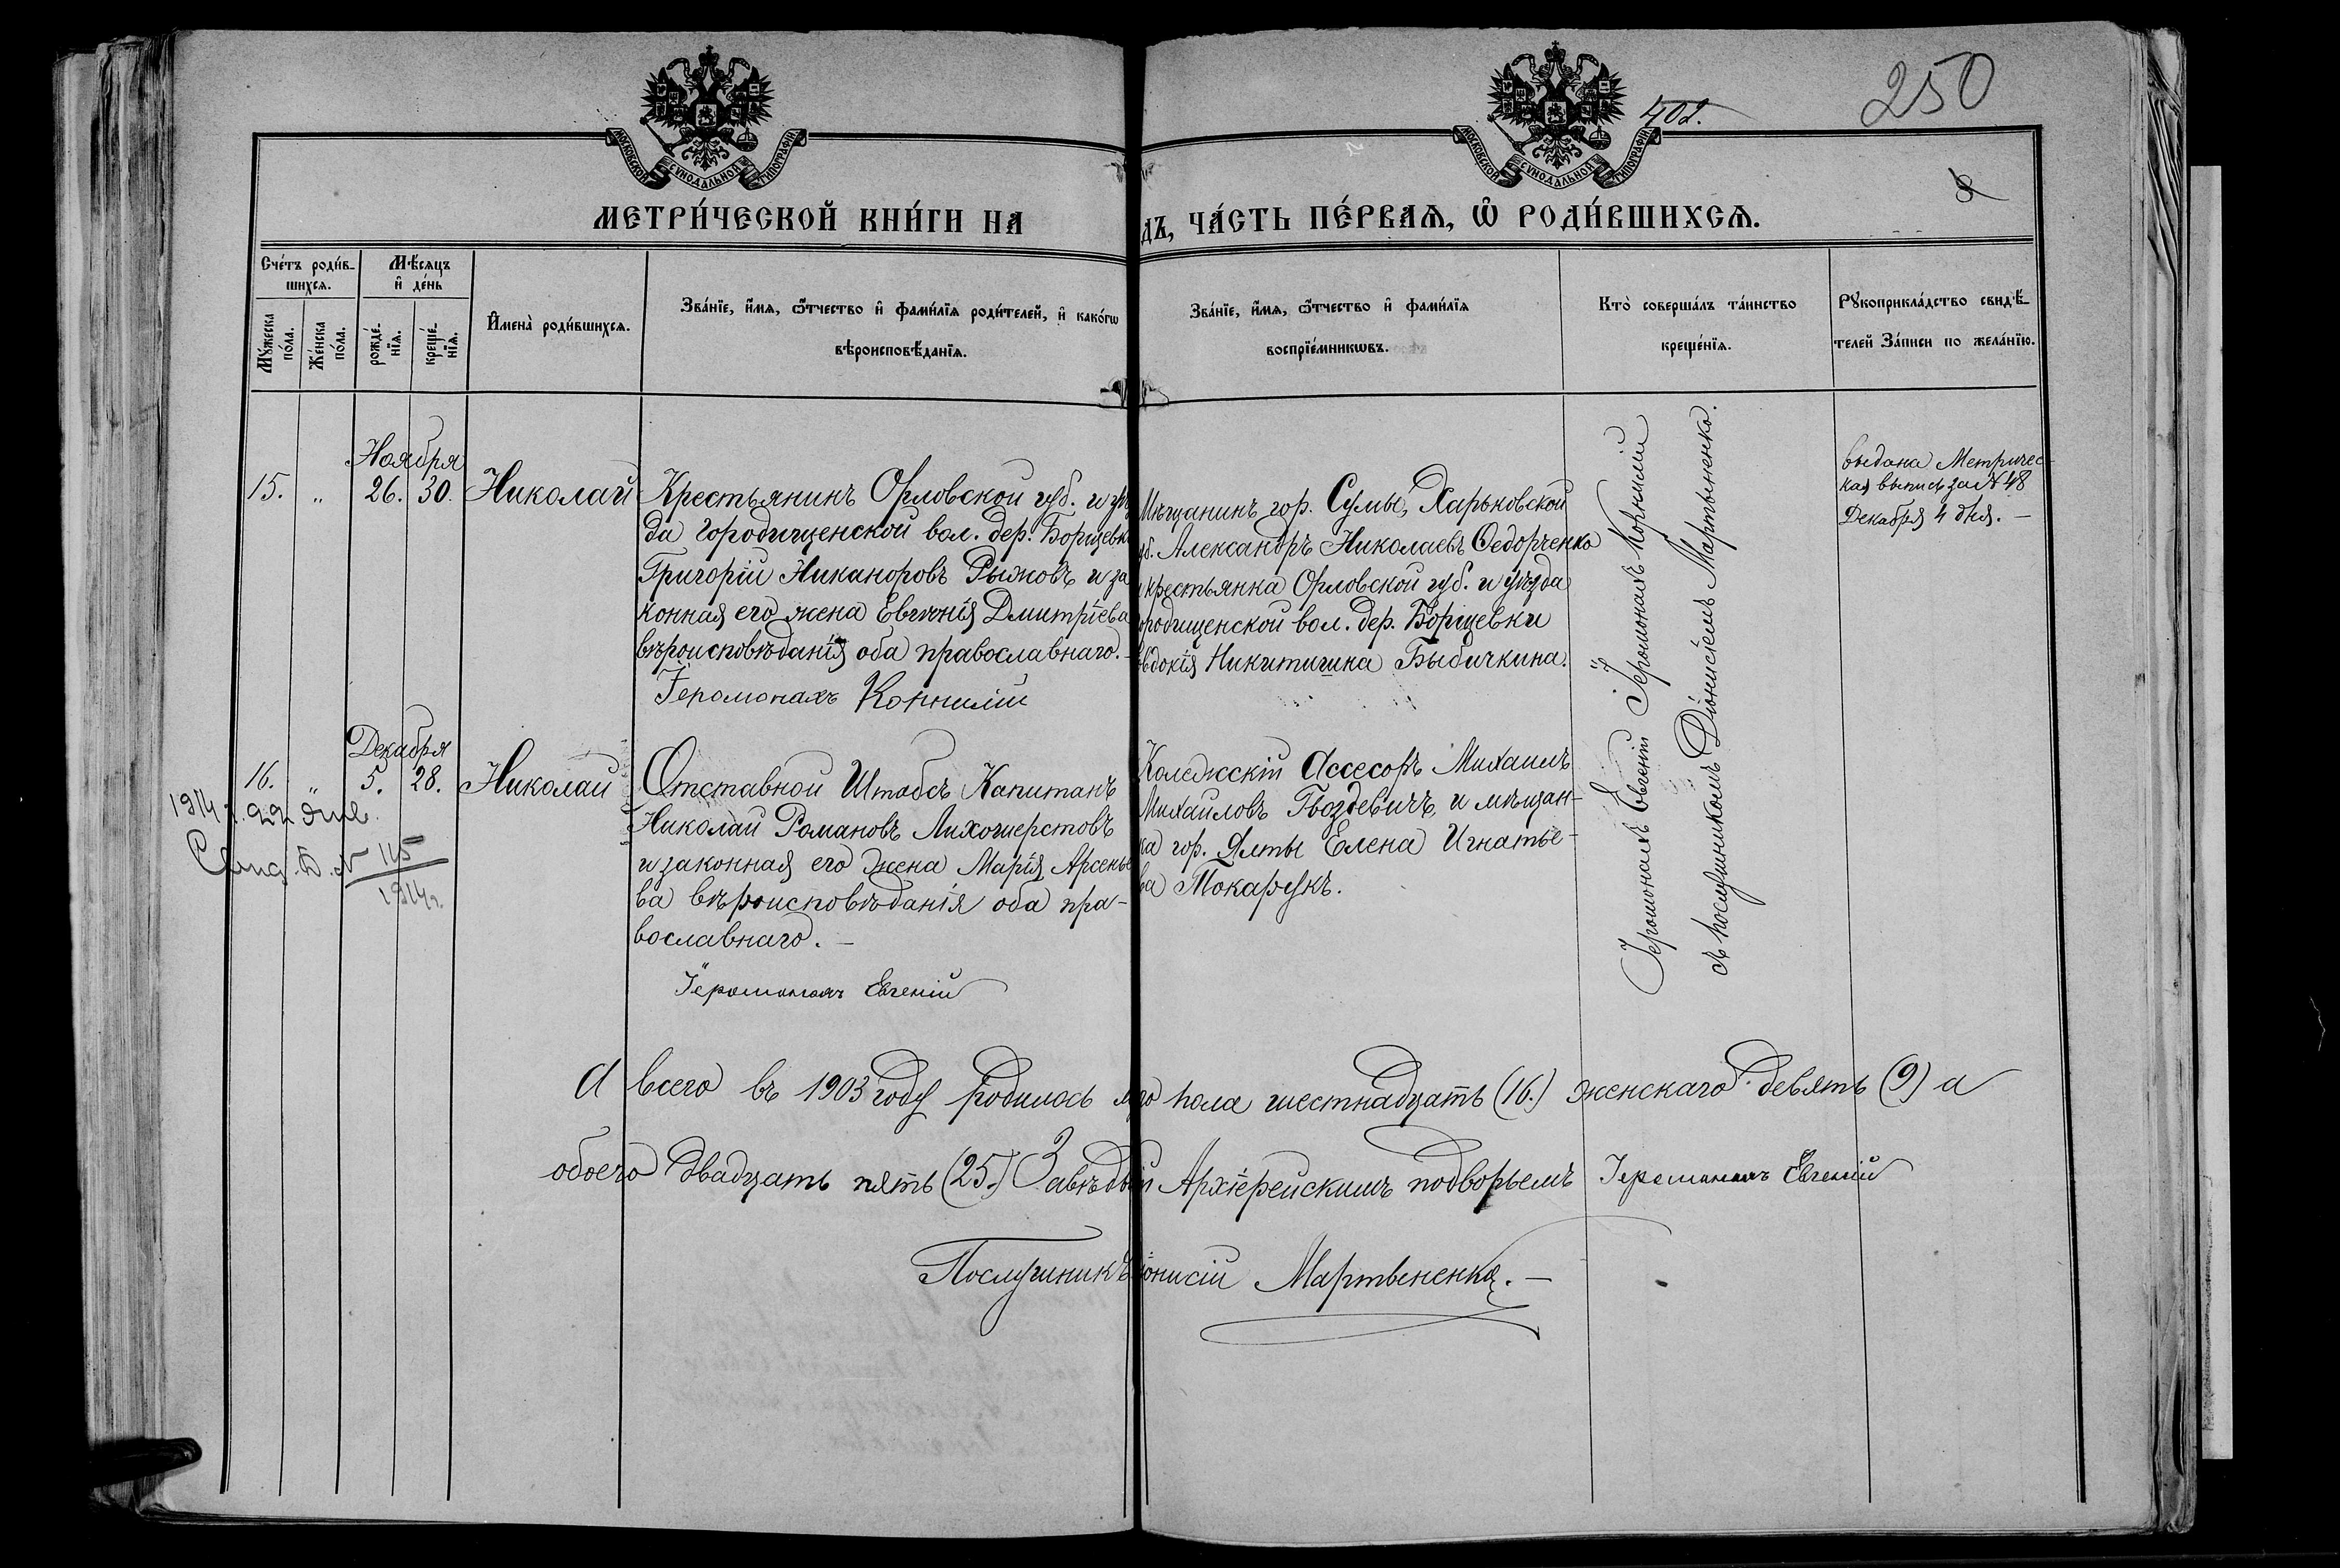 250
402.
МОСКОВСКОЙ СѴНОДАЛЬНОЙ ТИПОГРАФІИ
МОСКОВСКОЙ СѴНОДАЛЬНОЙ ТИПОГРАФІИ
МЕТРИ́ЧЕСКОЙ КНИ́ГИ НА
ДЪ, ЧА́СТЬ ПЕ́РВАѦ, Ѡ҆ РОДИ́ВШИХСѦ.
Сче́тъ роди́в-
шихсѧ.
Мѣ́сяцъ
и҆ де́нь
Мꙋ́жеска
по́ла.
Же́нска
по́ла.
рожде́-
нїѧ.
креще́-
нїѧ.
И҆мена̀ роди́вшихсѧ.
Зва́нїе, и҆́мѧ, ѻ҆́тчество и҆ фами́лїѧ роди́телей, и҆ како́гѡ
вѣроисповѣ́данїѧ.
Зва́нїе, и҆́мѧ, ѻ҆́тчество и҆ фами́лїѧ
воспрїе́мникѡвъ.
Кто̀ соверша́лъ та́инство
креще́нїѧ.
Рꙋкоприкла́дство свидѣ́-
телей За́писи по жела́нїю.
Ноября
15. „ 26. 30. Николай
Крестьянинъ Орловской губ. и уѣз
да Городищенской вол. дер. Борщевки
Григорій Никаноровъ Рыжовъ и за
конная его жена Евгенія Дмитріева
вѣроисповѣданія оба православнаго. –
Іеромонахъ Корнилій
Мѣщанинъ гор. Сумы, Харьковской
губ. Александръ Николаевъ Ѳедорченко
и крестьянка Орловской губ. и уѣзда
Городищенской вол. дер. Борщевки
Евдокія Никитишна Быбичкина.
Іеромонахъ Евгеній Іеромонахъ Корнилій
съ послушникомъ Діонисіемъ Мартыненко.
выдана Метричес-
кая выпись за № 48
Декабря 4 дня. –
Декабря
16. „ 5. 28. Николай
1914 г. 22
№ 115
1914 г.
Отставной Штабсъ Капитанъ
Николай Романовъ Лихошерстовъ
и законная его жена Марія Арсенье
ва вѣроисповѣданія оба пра-
вославнаго. –
Іеромонахъ Евгеній
Колежскій Ассесоръ Михаилъ
Михайловъ Гвоздевичъ, и мѣщан-
ка гор. Ялты Елена Игнатье-
ва Токарукъ.
А всего въ 1903 году родилось м-го пола шестнадцать (16.) женскаго девять (9) а
обоего двадцать пять (25.) Завѣдый Архіерейскимъ подворьемъ Іеромонахъ Евгеній
Послушникъ Діонисій Мартыненко. –